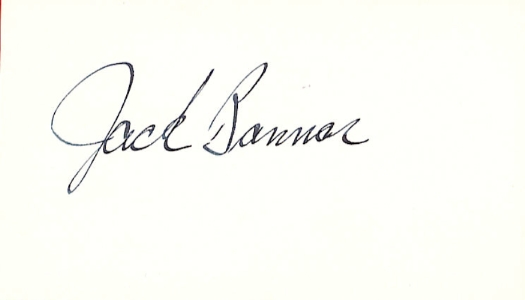 Jack Bannon